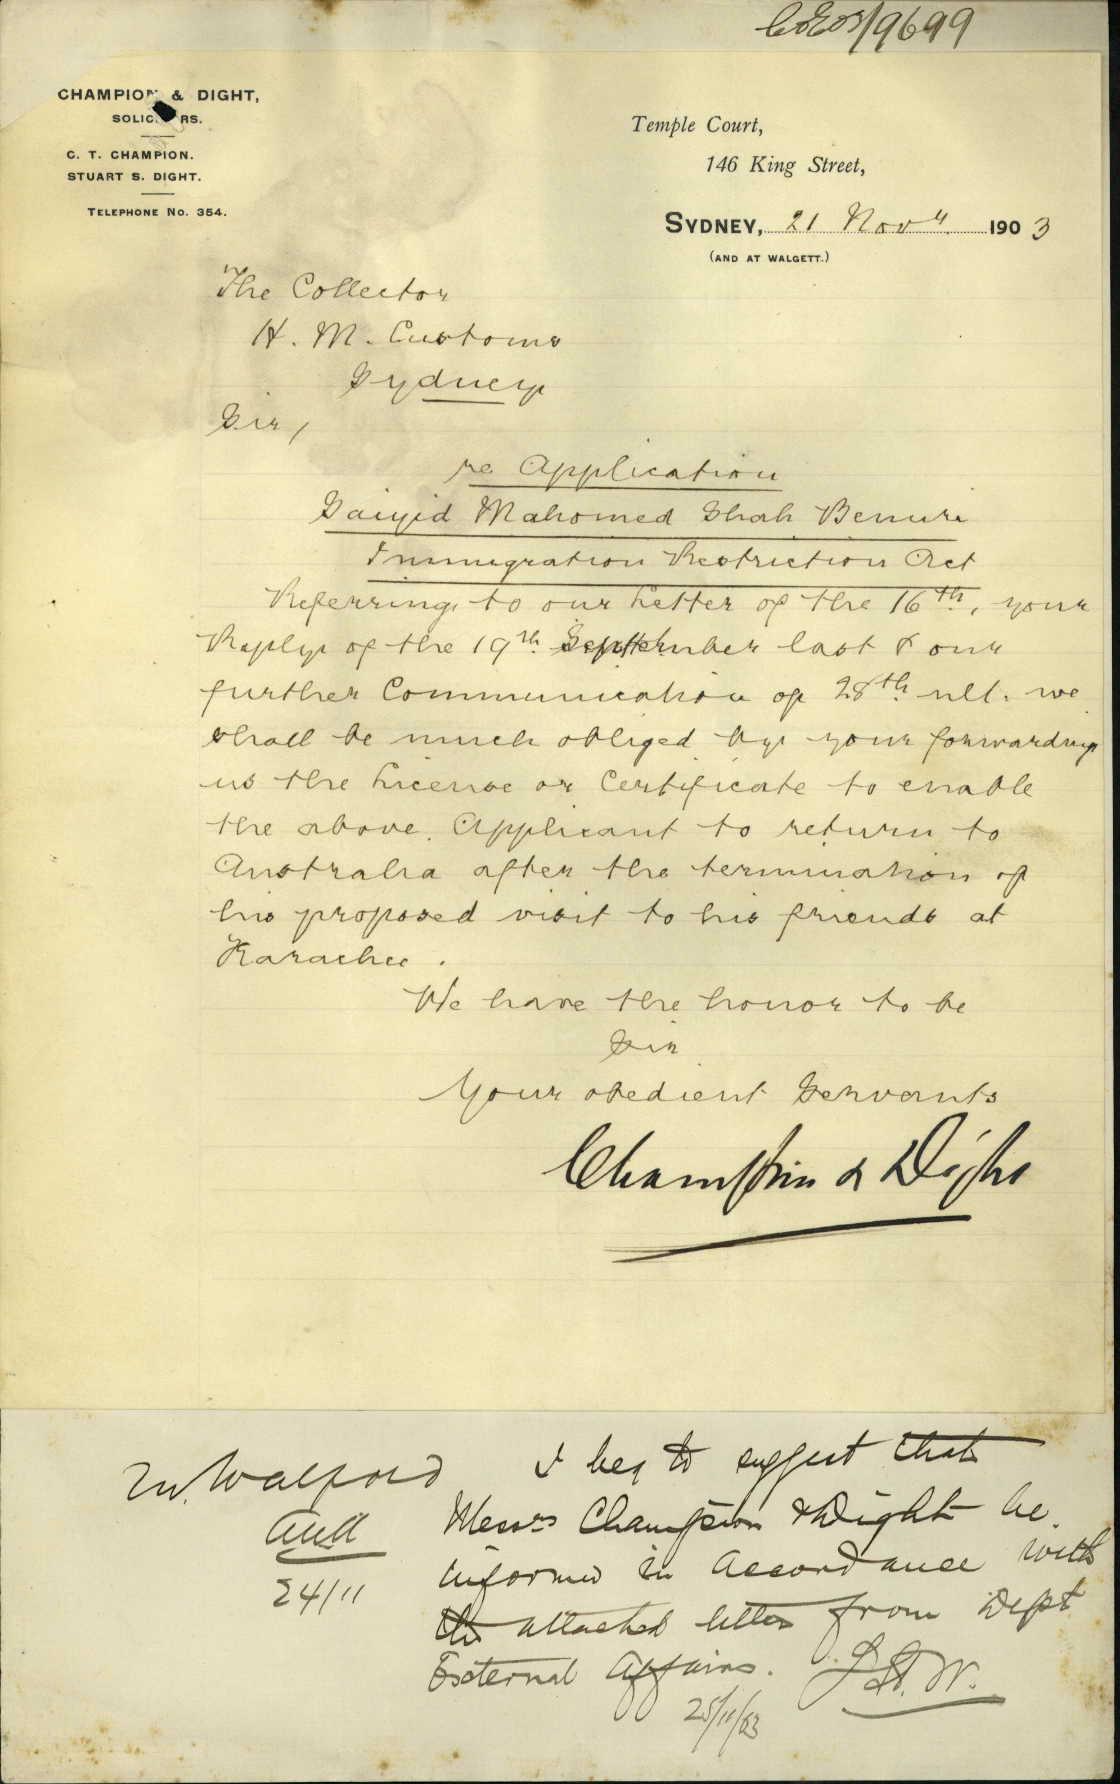 /9699
CHAMPION & DIGHT,
SOLIC RS.
C. T. CHAMPION.
STUART S. DIGHT.
TELEPHONE NO. 354.
Temple Court,
146 King Street,
SYDNEY, 21 Novr 1903
(AND AT WALGETT.)
The Collector
H. M. Customs
Sydney
Sir,
re Application
Saiyid Mahomed Shah Benuri
Immigration Restriction Act
Referring to our Letter of the 16th, your
Reply of the 19th September last & our
further Communication of 28th ult. we
shall be much obliged by your forwarding
us the License or Certificate to enable
the above Applicant to return to
Australia after the termination of
his proposed visit to his friends at
Karachee.
We have the honor to be
Sir
Your obedient Servants
Champion & Dight
Walford
24/11
I beg to suggest that
Messrs Champion & Dight be
informed in accordance with
the attached letter from Dept
External Affairs.
25/11/03